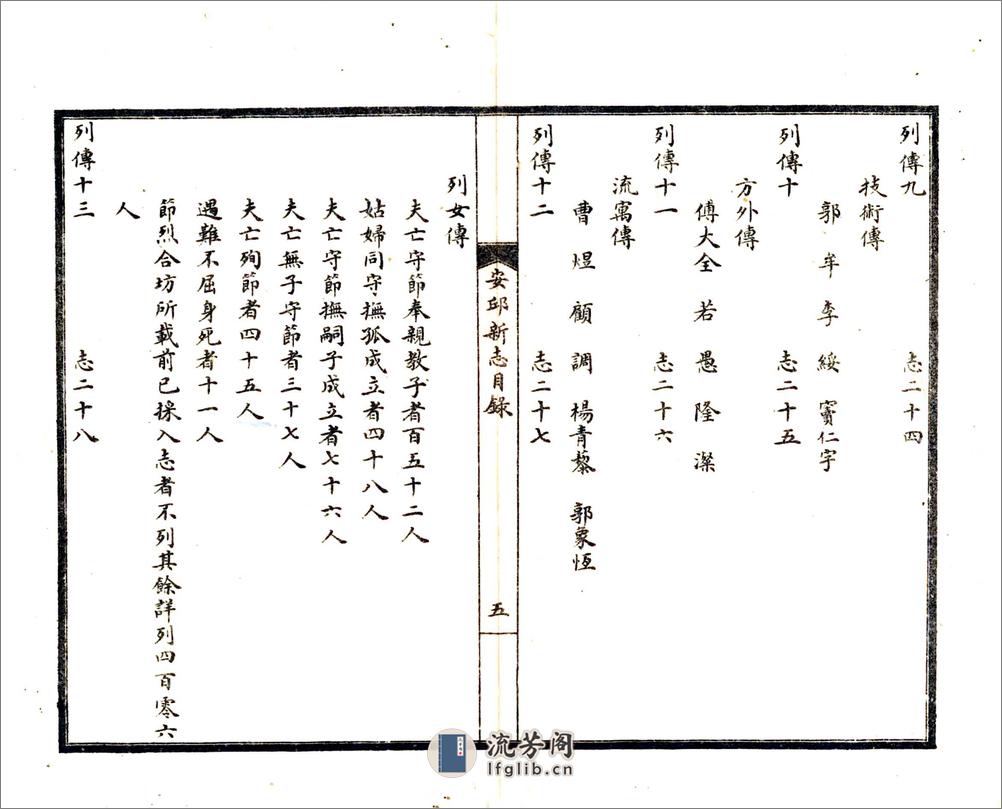 列傳九　志二十四
技術傳
郭牟　李綏　竇仁宇
列傳十　志二十五
方外傳
傅大全　若愚　隆瀿
列傳十一　志二十六
流寓傳
曹煜　顧調　楊青藜　郭象恆
列傳十二　志二十七
安邱新志目錄　五
列女傳
夫亡守節奉親教子者百五十二人
姑婦同守撫孤成立者四十八人
夫亡守節撫嗣子成立者七十六人
夫亡無子守節者三十七人
夫亡殉節者四十五人
遇難不屈身死者十一人
節烈合坊所載前已採入志者不列其餘詳列四百零六
人
列傳十三　志二十八
流芳阁
lfglib.cn